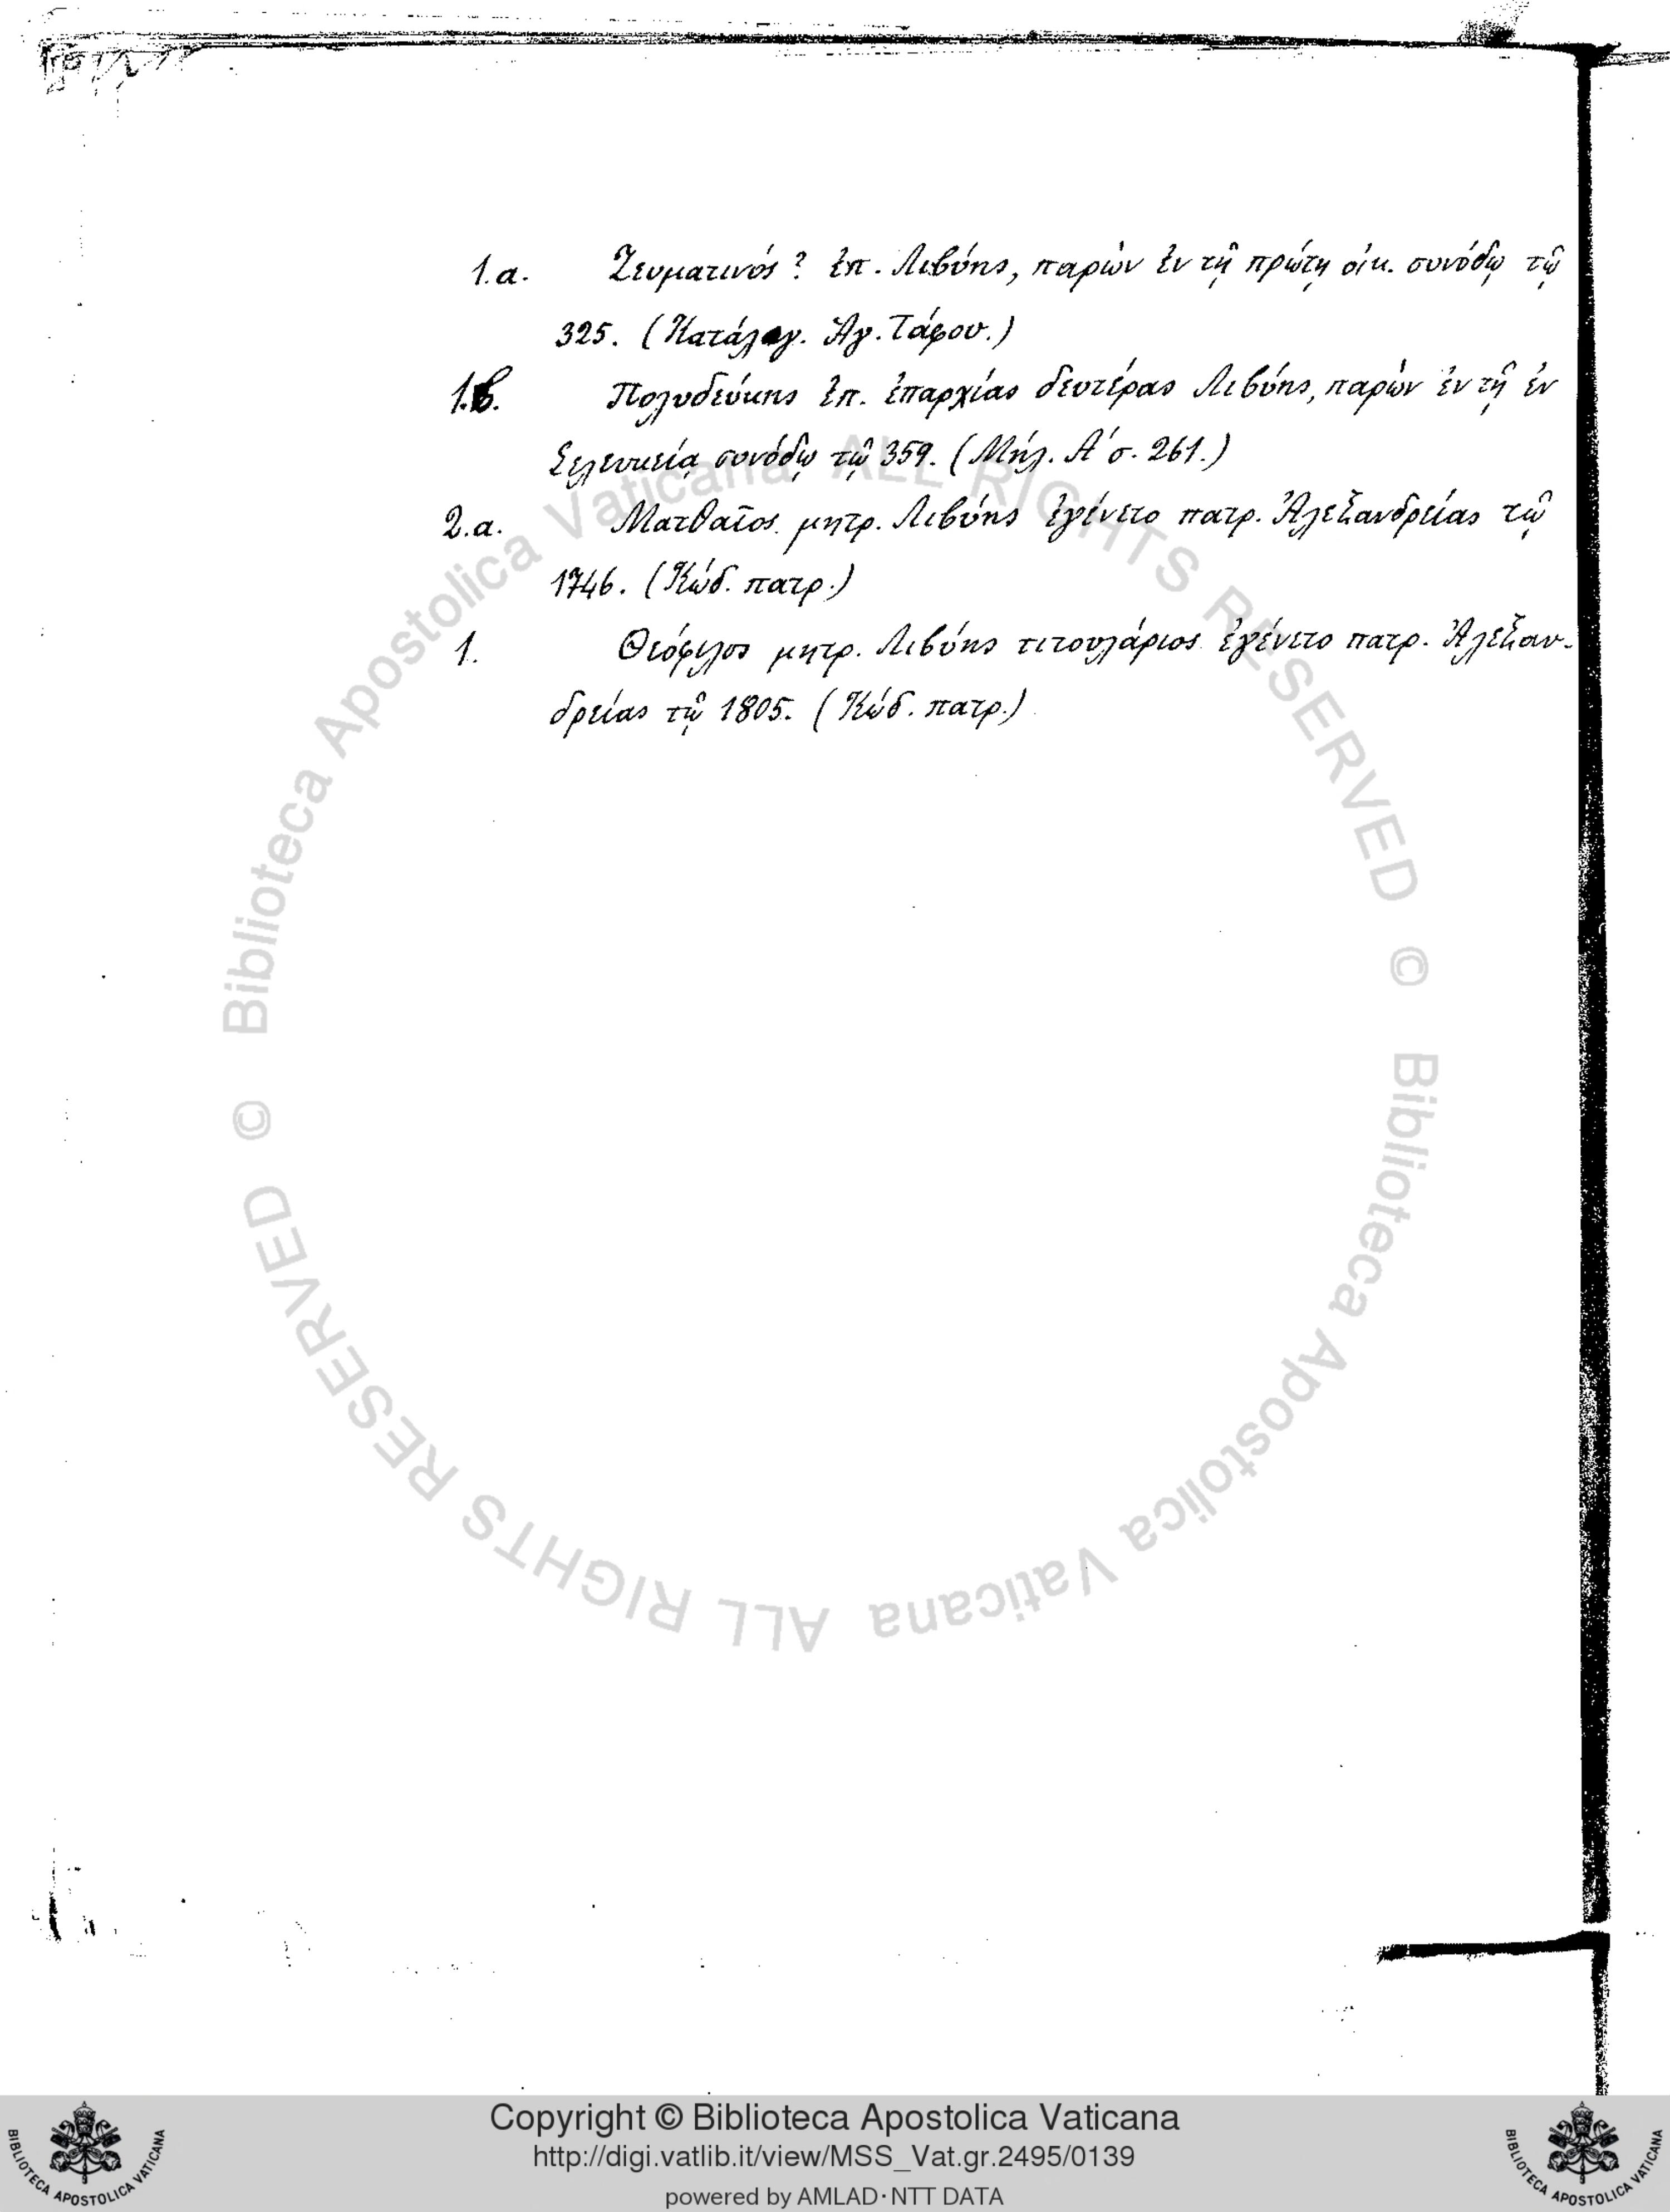 1.α. Ζευματινός? ἐπ. Λιβύης, παρὼν ἐν τῇ πρώτῃ οἰκ. συνόδῳ τῷ
325. (Κατάλογ. Ἁγ. Τάφου.)
1.β. Πολυδεύκης ἐπ. ἐπαρχίας δευτέρας Λιβύης, παρὼν ἐν τῇ ἐν
Σελευκείᾳ συνόδῳ τῷ 359. (Μήλ. Α΄ σ. 261.)
2.α. Ματθαῖος μητρ. Λιβύης ἐγένετο πατρ. Ἀλεξανδρείας τῷ
1746. (Κώδ. πατρ.)
1. Θεόφιλος μητρ. Λιβύης τιτουλάριος ἐγένετο πατρ. Ἀλεξαν-
δρείας τῷ 1805. (Κώδ. πατρ.)
© Biblioteca Apostolica Vaticana ALL RIGHTS RESERVED
© Biblioteca Apostolica Vaticana ALL RIGHTS RESERVED
Copyright © Biblioteca Apostolica Vaticana
http://digi.vatlib.it/view/MSS_Vat.gr.2495/0139
powered by AMLAD·NTT DATA
BIBLIOTECA APOSTOLICA VATICANA
BIBLIOTECA APOSTOLICA VATICANA